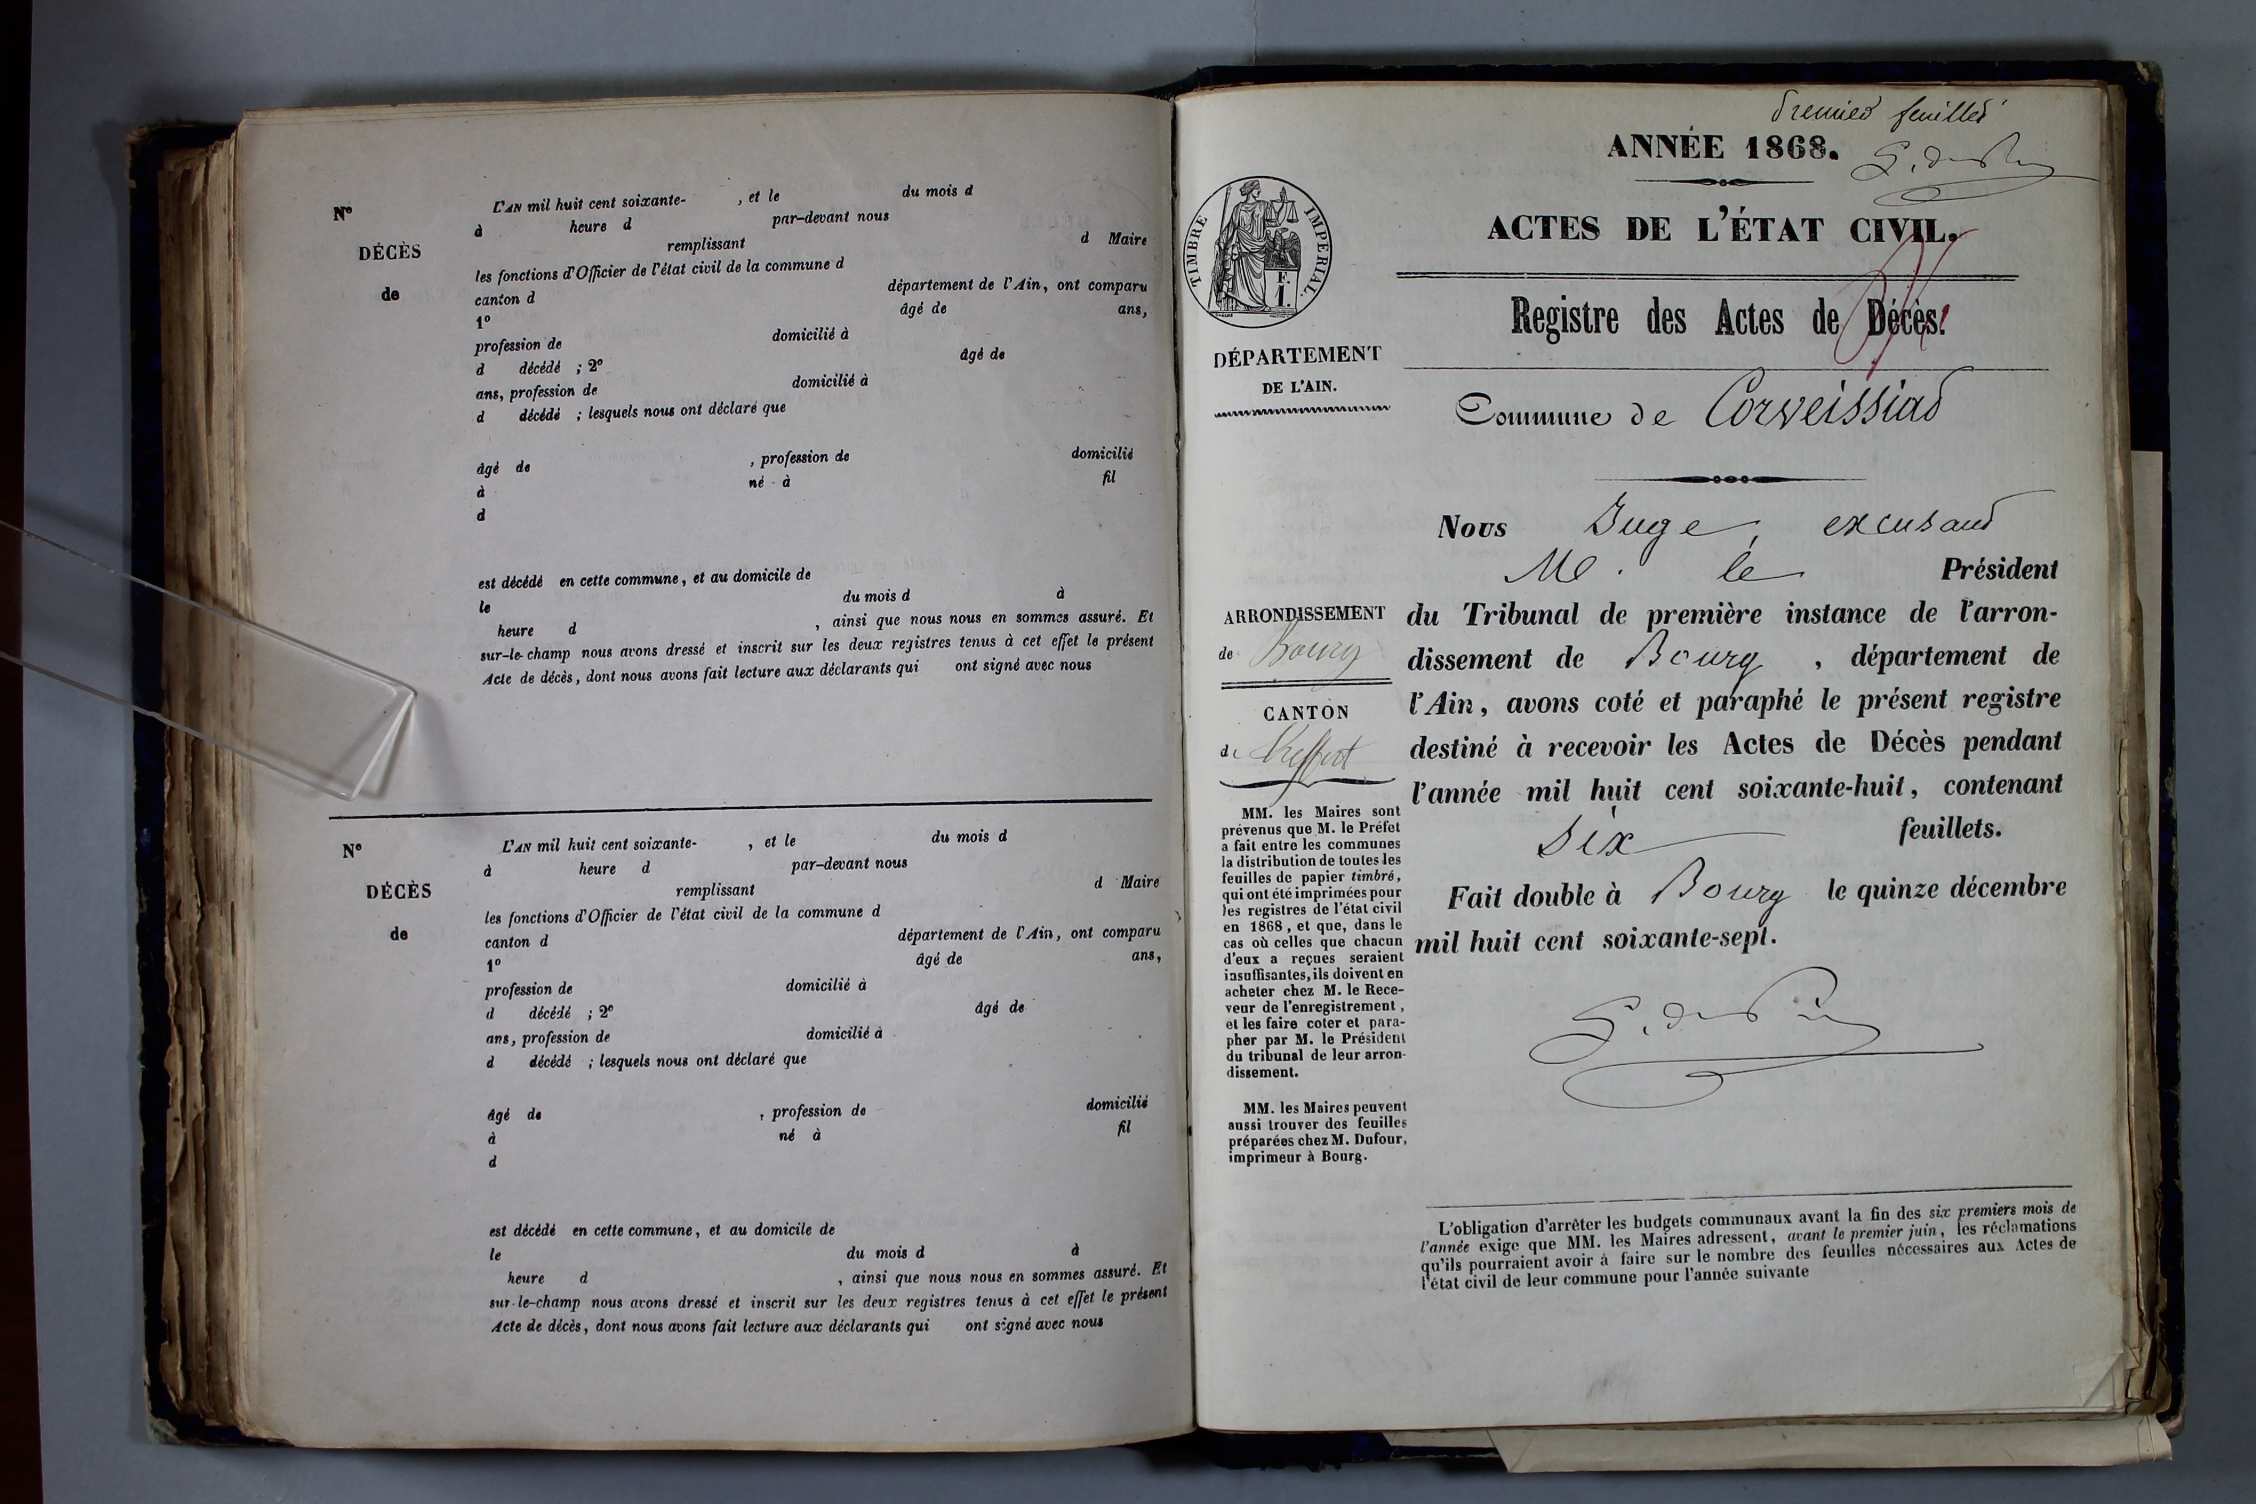 Nº
DÉCÈS
de
L'AN mil huit cent soixante- , et le du mois d
à heure d par-devant nous
remplissant d Maire
les fonctions d'Officier de l'état civil de la commune d
canton d département de l'Ain, ont comparu
1º âgé de ans,
profession de domicilié à
d décédé ; 2º âgé de
ans, profession de domicilié à
d décédé ; lesquels nous ont déclaré que
âgé de , profession de domicilié
à né à fil
d
est décédé en cette commune, et au domicile de
le du mois d à
heure d , ainsi que nous nous en sommes assuré. Et
sur-le-champ nous avons dressé et inscrit sur les deux registres tenus à cet effet le présent
Acte de décès, dont nous avons fait lecture aux déclarants qui ont signé avec nous
Nº
DÉCÈS
de
L'AN mil huit cent soixante- , et le du mois d
à heure d par-devant nous
remplissant d Maire
les fonctions d'Officier de l'état civil de la commune d
canton d département de l'Ain, ont comparu
1º âgé de ans,
profession de domicilié à
d décédé ; 2º âgé de
ans, profession de domicilié à
d décédé ; lesquels nous ont déclaré que
âgé de , profession de domicilié
à né à fil
d
est décédé en cette commune, et au domicile de
le du mois d à
heure d , ainsi que nous nous en sommes assuré. Et
sur-le-champ nous avons dressé et inscrit sur les deux registres tenus à cet effet le présent
Acte de décès, dont nous avons fait lecture aux déclarants qui ont signé avec nous
Premier feuillet
ANNÉE 1868.
ACTES DE L'ÉTAT CIVIL.
Registre des Actes de Décès.
TIMBRE IMPERIAL.
F.
1.
DÉPARTEMENT
DE L'AIN.
Commune de Corveissiat
Nous Juge, excusant
M. le Président
du Tribunal de première instance de l'arron-
dissement de Bourg , département de
l'Ain, avons coté et paraphé le présent registre
destiné à recevoir les Actes de Décès pendant
l'année mil huit cent soixante-huit, contenant
six feuillets.
Fait double à Bourg le quinze décembre
mil huit cent soixante-sept.
ARRONDISSEMENT
de Bourg
CANTON
de Treffort
MM. les Maires sont
prévenus que M. le Préfet
a fait entre les communes
la distribution de toutes les
feuilles de papier timbré,
qui ont été imprimées pour
les registres de l'état civil
en 1868, et que, dans le
cas où celles que chacun
d'eux a reçues seraient
insuffisantes, ils doivent en
acheter chez M. le Rece-
veur de l'enregistrement,
et les faire coter et para-
pher par M. le Président
du tribunal de leur arron-
dissement.
MM. les Maires peuvent
aussi trouver des feuilles
préparées chez M. Dufour,
imprimeur à Bourg.
L'obligation d'arrêter les budgets communaux avant la fin des six premiers mois de
l'année exige que MM. les Maires adressent, avant le premier juin, les réclamations
qu'ils pourraient avoir à faire sur le nombre des feuilles nécessaires aux Actes de
l'état civil de leur commune pour l'année suivante